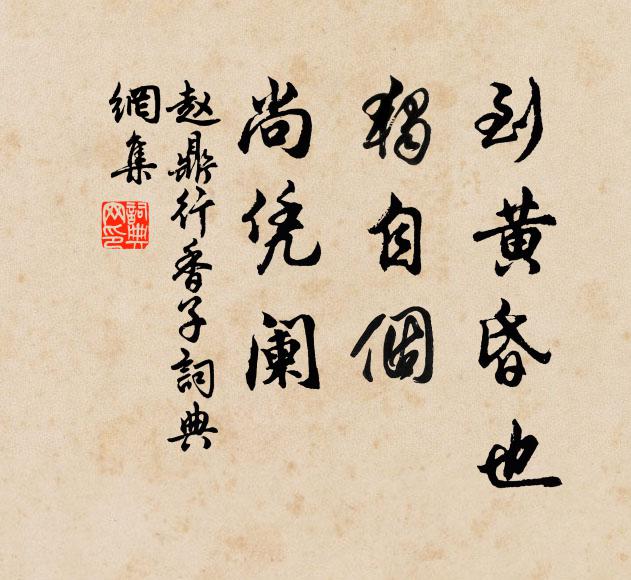 到黄昏也
獨自個
尚凭阑
赵鼎行香子詞典
網集
詞典
网印